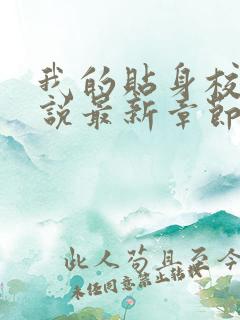 我的贴身校
说最新章节
此人苟且至今
未经同意禁止转载